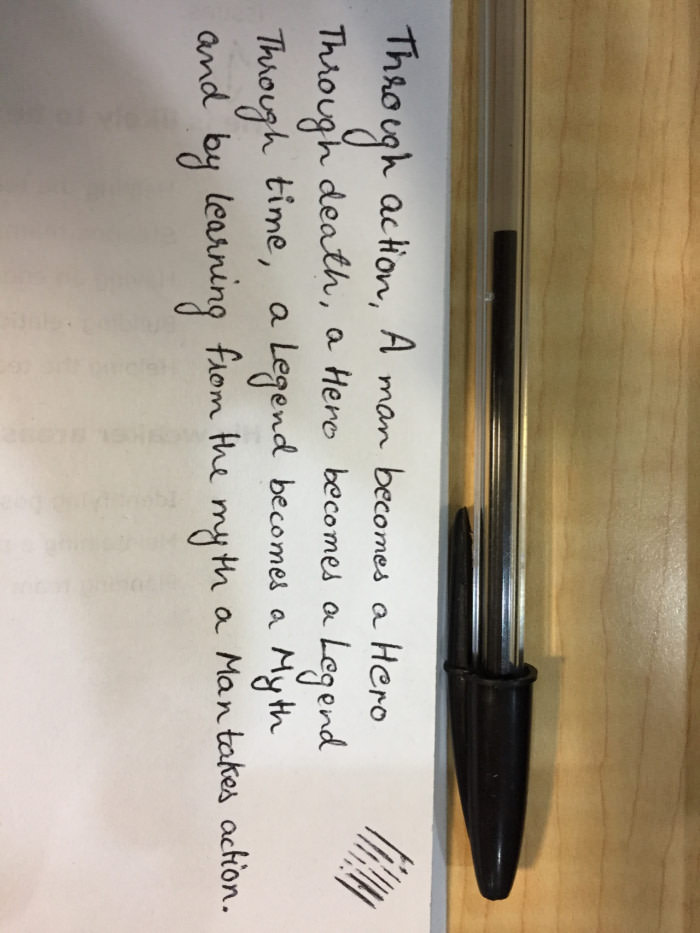 Through action, A man becomes a Hero
Through death, a Hero becomes a Legend
Through time, a Legend becomes a Myth
and by learning from the myth a Man takes action.